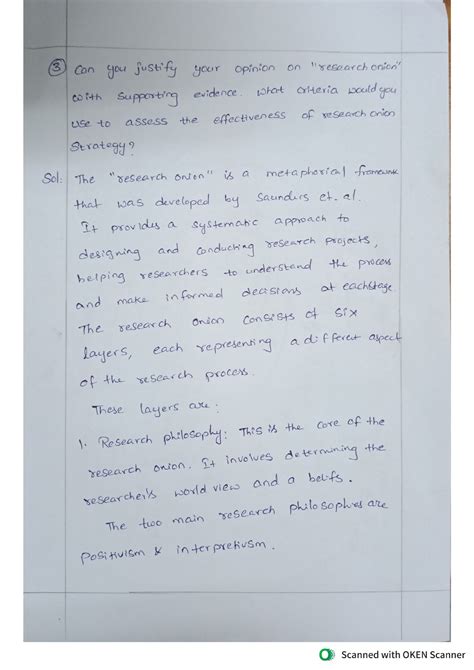 ③ Can you justify your opinion on "research onion"
with supporting evidence. What criteria would you
use to assess the effectiveness of research onion
Strategy?
Sol: The "research onion" is a metaphorical framework
that was developed by Saunders et. al.
It provides a systematic approach to
designing and conducting research projects,
helping researchers to understand the process
and make informed decisions at eachstage.
The research onion consists of six
layers, each representing a different aspect
of the research process.
These layers are:
1. Research philosophy: This is the core of the
research onion. It involves determining the
researcher's world view and a belifs.
The two main research philosophies are
Positivism & interpretivism.
Scanned with OKEN Scanner